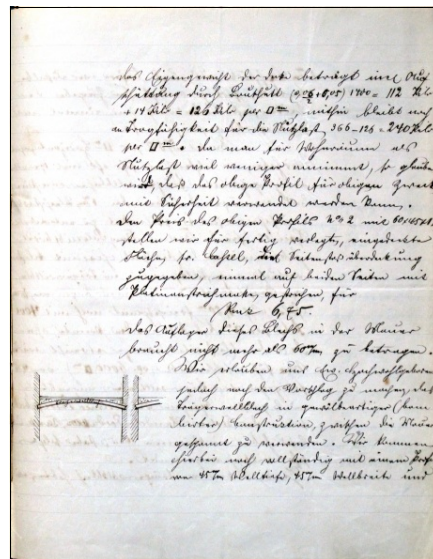 das Eigengewicht der Decke beträgt incl. Auf
schüttung durch Bauschutt (0,06+0,05) 1700 = 112 Kilo
+ 14 Kilo = 126 Kilo per □m, mithin bleibt noch
Tragfähigkeit für die Nutzlast 366-126 = 240 Kilo
per □m. Da man für Wohnräume als
Nutzlast viel weniger annimmt, so glauben
wir, daß das obige Profil für obigen Zweck
mit Sicherheit verwendet werden kann.
Den Preis des obigen Profils No 2 mit
stellen wir für fertig verlegte, eingedeckte
Fläche, fr. Basel, Seitenüberdeckung
zugegeben, einmal auf beiden Seiten mit
gestrichen, für
6,45.
Das Auflager dieses Blechs in der Mauer
braucht nicht mehr als 60 m/m zu betragen.
Wir erlauben uns Ew. Hochwohlgeboren
jedoch noch den Vorschlag zu machen, das
Trägerwellblech in gewölbeartiger (bom-
bierter) Construktion zwischen die Mauer
gespannt zu verwenden. Wir kommen
hierbei noch vollständig mit einem Profil
von 45 m/m Wellentiefe, 45 m/m Wellbreite und